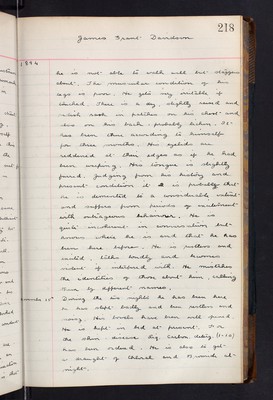 218
James Grant Davidson
1894
he is not able to walk well but staggers
about. The muscular condition of his
legs is poor. He gets very unstable if
. There is a dry, slightly raised and
reddish rash in patches on his chest and
also on his back, probably . It
has been there according to himself
for three months. His eyelids are
reddened at their edges as if he had
been weeping. His tongue is slightly
furred. Judging from his history and
present condition it is probable that
he is demented to a considerable extent
and suffers from periods of excitement
with outrageous behaviour. He is
quite incoherent in conversation but
knows where he is and that he has
been here before. He is restless and
, talks loudly and becomes
violent if interfered with. He mistakes
the identities of those about him, calling
them by different names.
10th During the six nights he has been here
he has slept badly and been restless and
noisy. His bowels have been well moved.
He is kept in bed at present. For
the skin disease Liq. Carbon. deterg. (1-20)
has been ordered. He is also to get
a draught of Chloral and Bromide at
night.